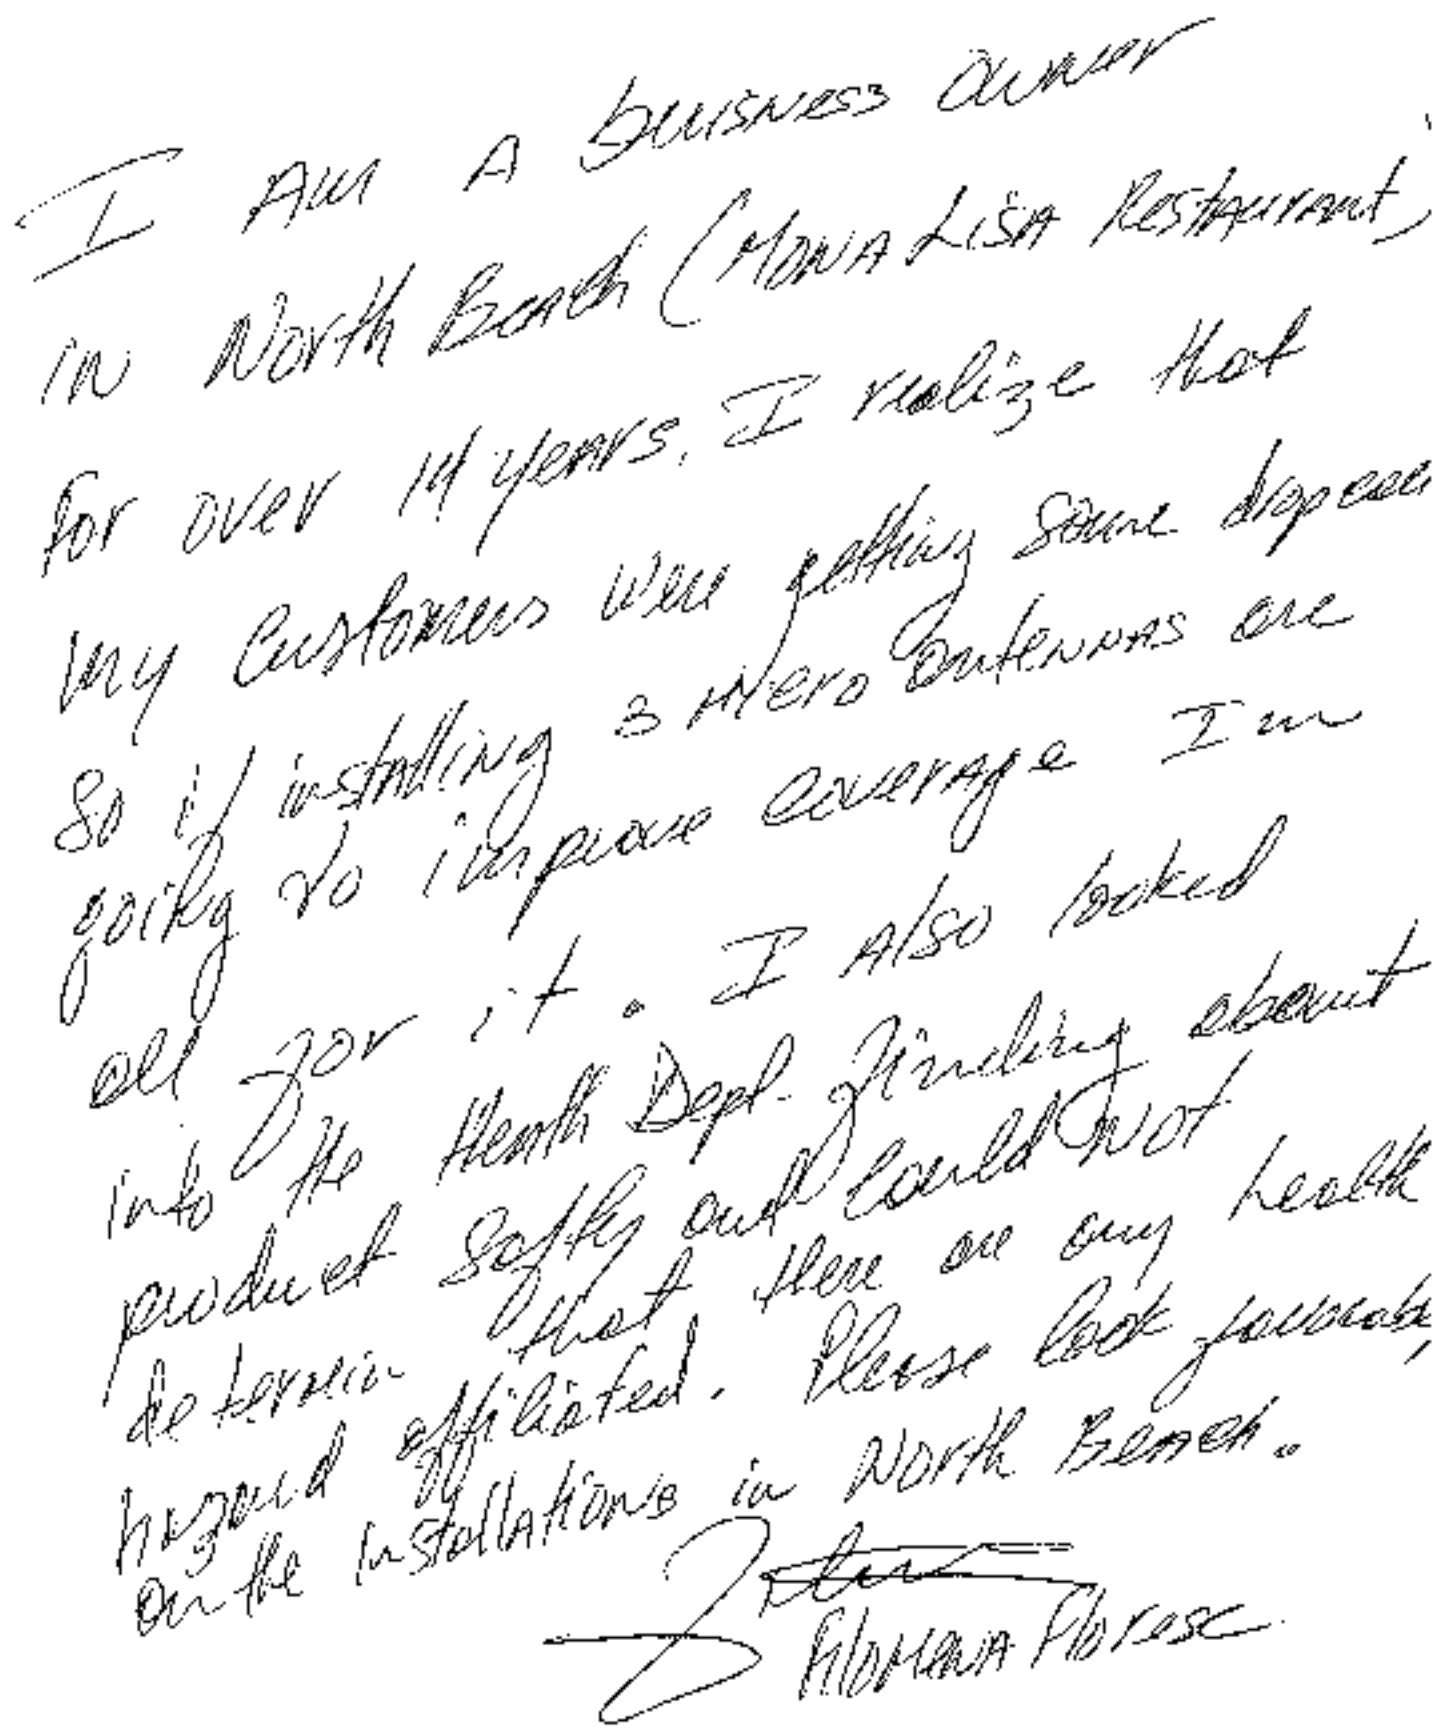 I Am A buisness owner
in North Beach (Mona Lisa Restaurant)
for over 14 years. I realize that
my Customers were getting some
So if installing 3 Micro antennas are
going to improve coverage Im
all for it. I Also looked
into the Health Dept. finding about
product Safty and could not
determin that there are any health
hazard affiliated. Please look
on the InstallAtions in North Beach.
Filomena Florese